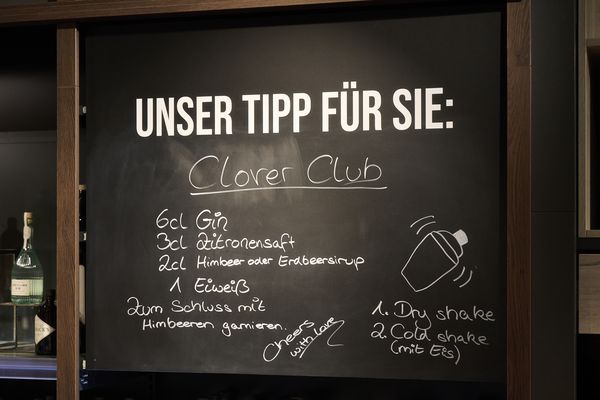 UNSER TIPP FÜR SIE:
Clover Club
6cl Gin
3cl Zitronensaft
2cl Himbeer oder Erdbeersirup
1 Eiweiß
Zum Schluss mit
Himbeeren garnieren.
Cheers
with love
1. Dry shake
2. Cold shake
(mit Eis)